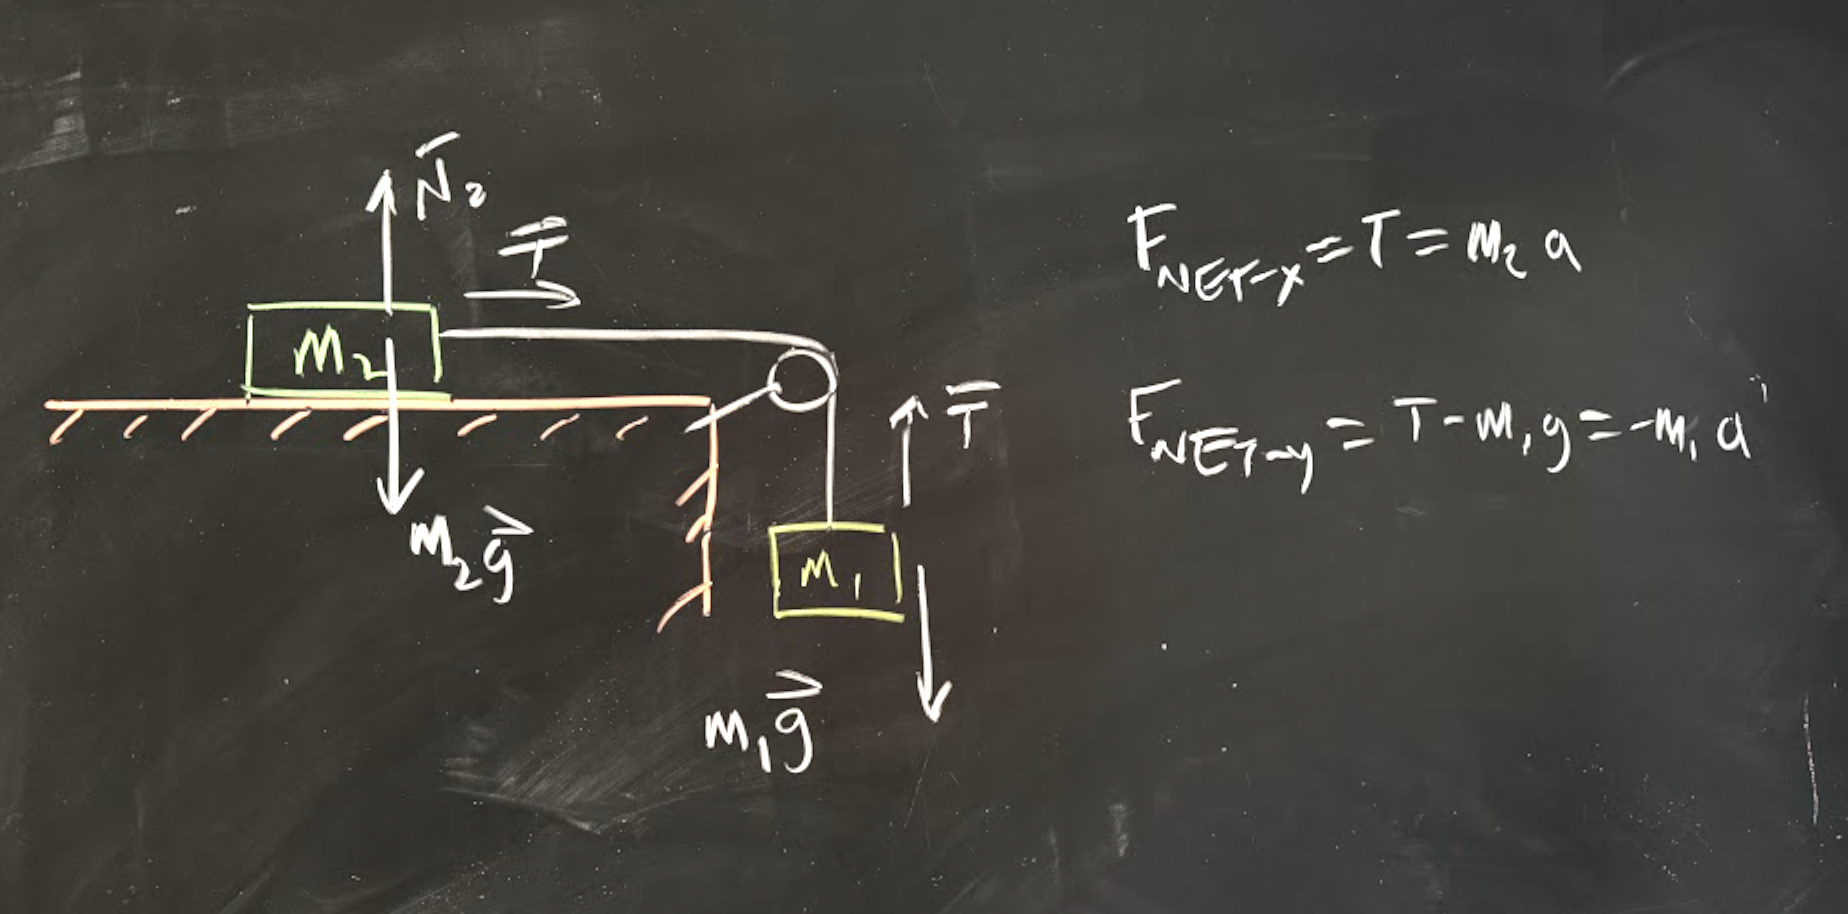 N̄₂
T̄
M₂
m₂g⃗
T̄
M₁
m₁g⃗
F_NET-x = T = m₂ a
F_NET-y = T - m₁g = -m₁ a